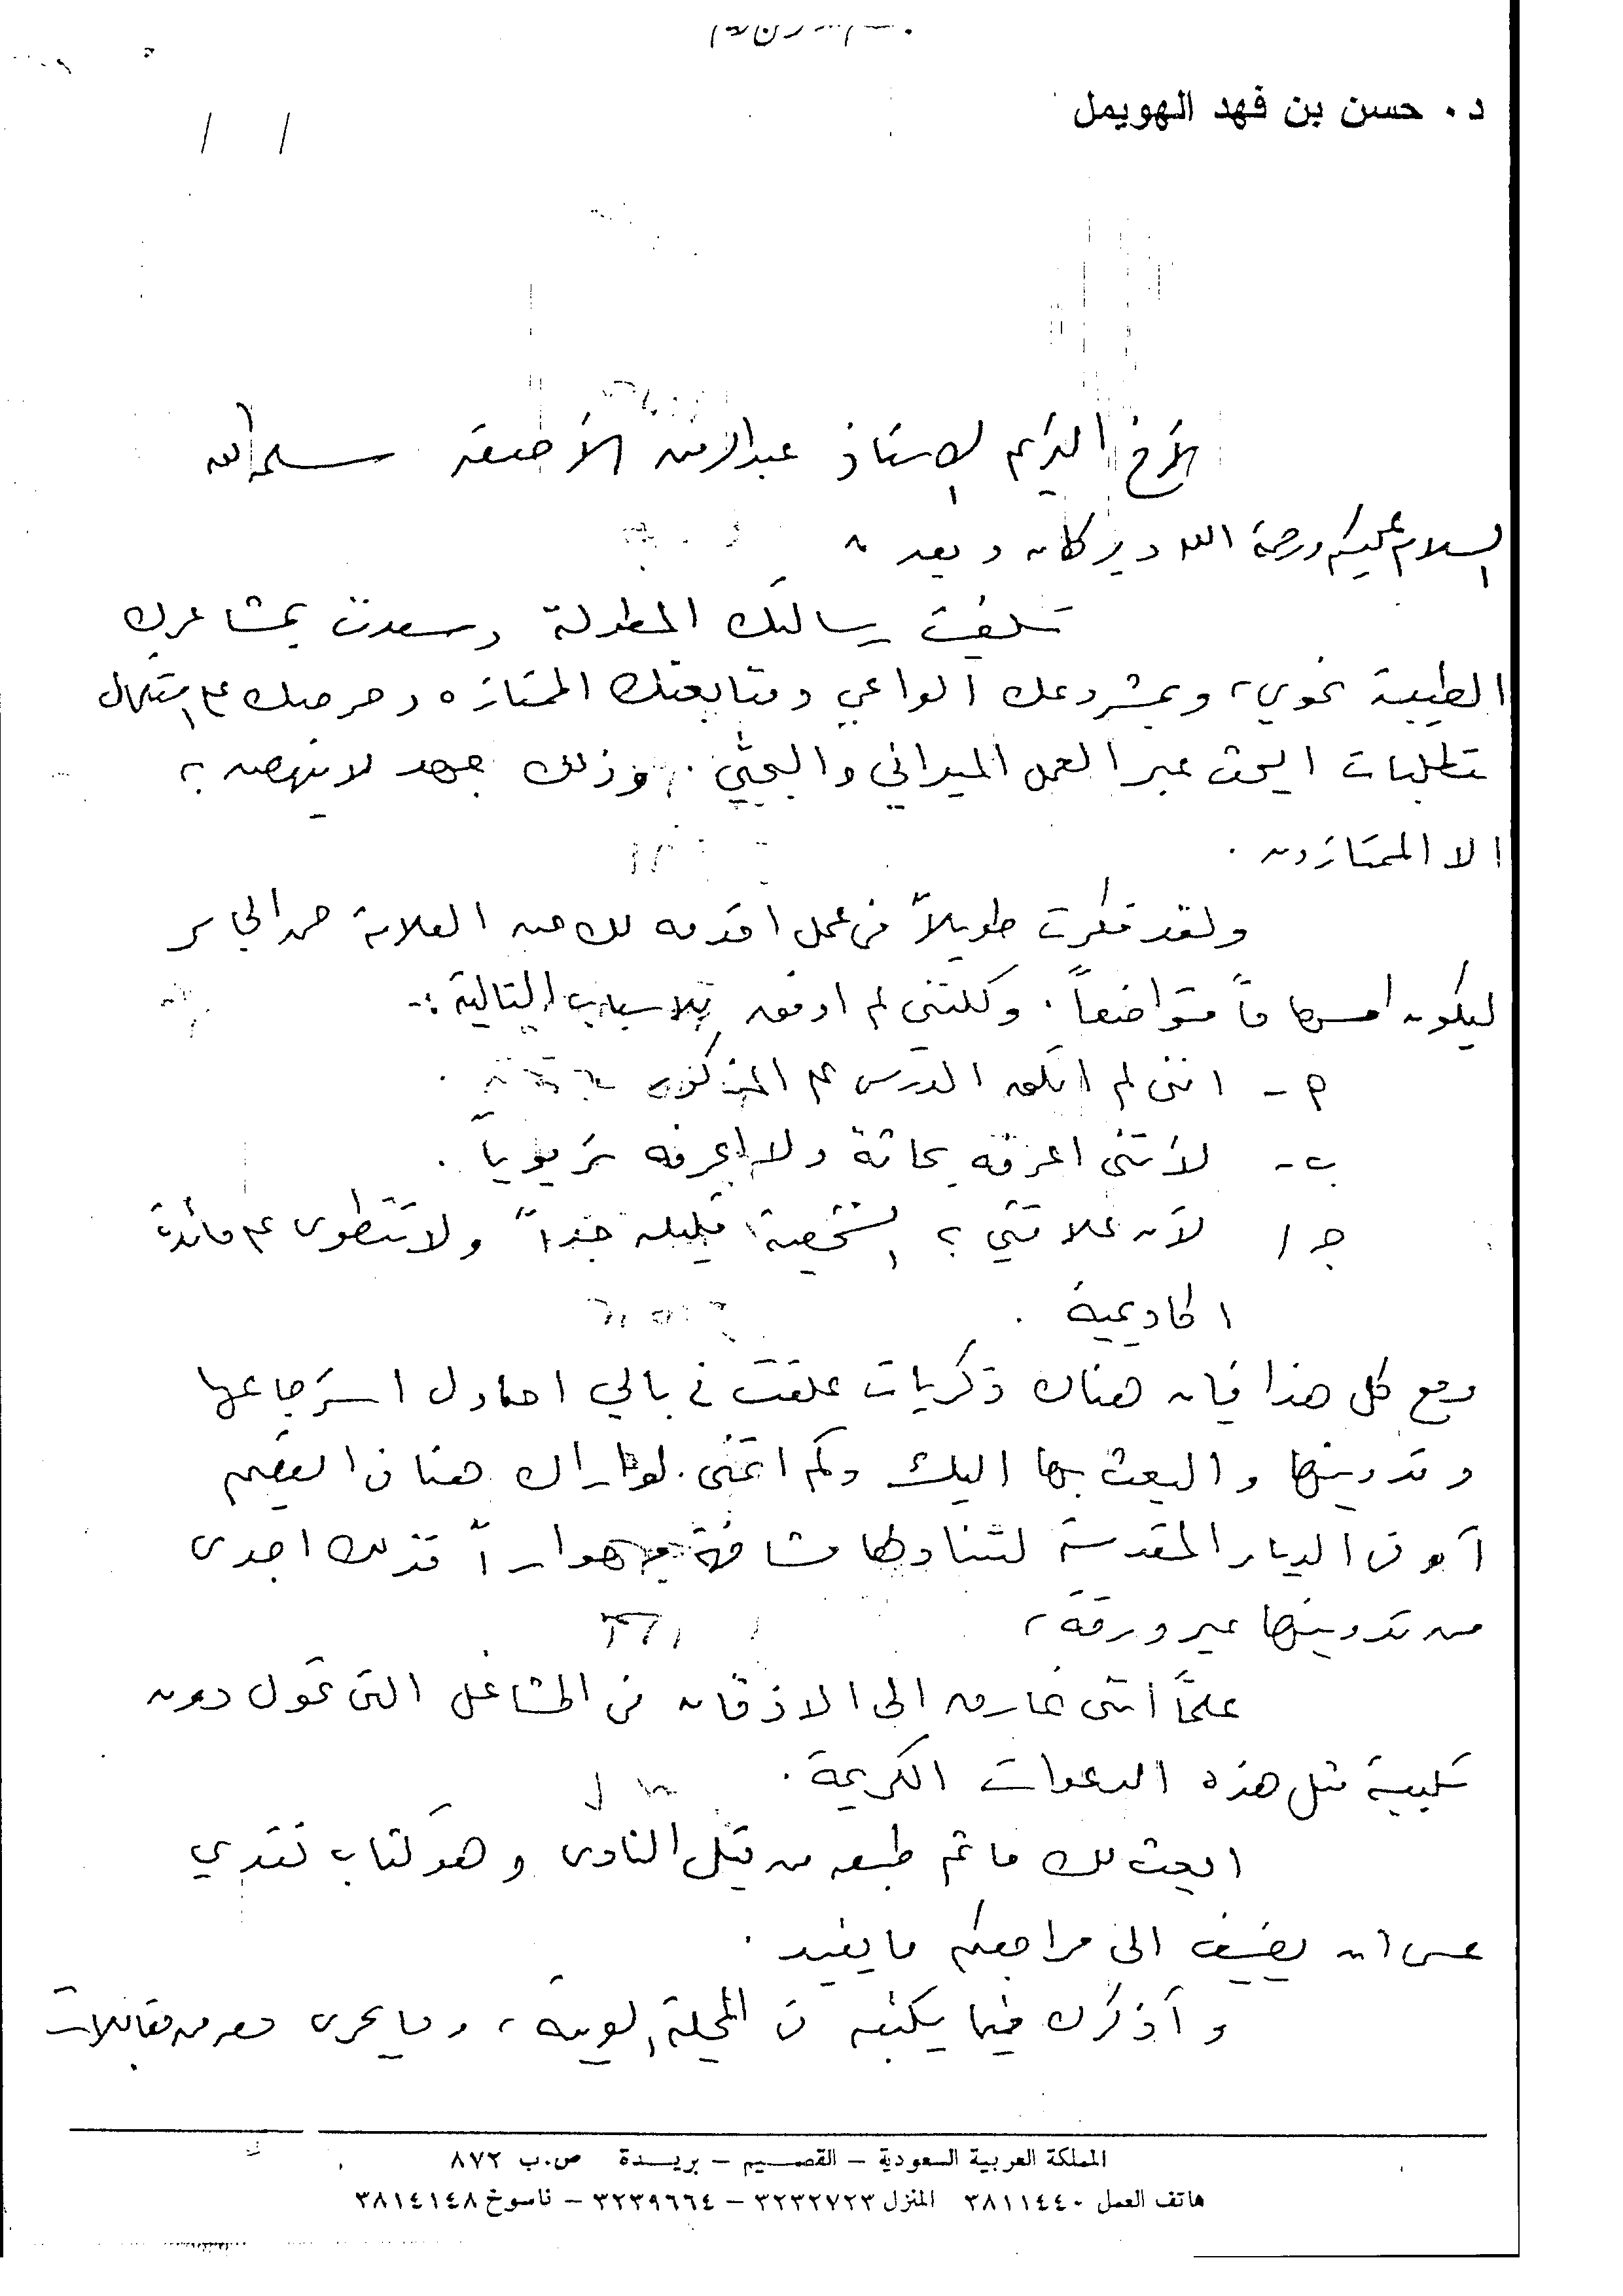 د. حسن بن فهد الهويمل
/ /
الأخ الكريم الاستاذ عبدالرحمن الأ سلمه الله
السلام عليكم ورحمة الله وبركاته وبعد ،
تلقيت رسالتك المطولة وسعدت بمشاعرك
الطيبة نحوي، وبمشروعك الواعي ومتابعتك الممتازه وحرصك على استكمال
متطلبات البحث عبر العمل الميداني والبحثي. وذلك جهد لا ينهض به
الا الممتازون .
ولقد فكرت طويلاً في عمل اقدمه لك عن العلامة حمد الجاسر
ليكون اسهاماً متواضعاً. ولكنني لم اوفق للاسباب التالية :-
أ - انني لم اتلق الدرس على المذكور .
ب - لأنني اعرفه بحاثة ولا اعرفه تربوياً .
ج / لأن علاقتي به الشخصية قليله جداً ولا تنطوى على فائدة
اكاديمية .
ومع كل هذا فإن هناك ذكريات علقت في بالي احاول استرجاعها
وتدوينها والبعث بها اليك وكم اتمنى لو اراك هنا في القصيم
أو في الديار المقدسة لنتناولها مشافهة وحواراً فذلك اجدى
من تدوينها عبر ورقة ،
علماً انني غارق الى الاذقان في المشاغل التي تحول دون
تلبية مثل هذه الدعوات الكريمة .
ابعث لك ما تم طبعه من قبل النادى وهو كتاب نقدي
عسى ان يضيف الى مراجعكم ما يفيد .
و أذكرك فيما يكتبه في المجلة العربية ، وما يجرى معه من مقابلات
المملكة العربية السعودية – القصيم – بريدة ص.ب ٨٧٢
هاتف العمل ٣٨١١٤٤٠ المنزل ٣٢٣٢٧٢٣ – ٣٢٣٩٦٦٤ – ناسوخ ٣٨١٤١٤٨